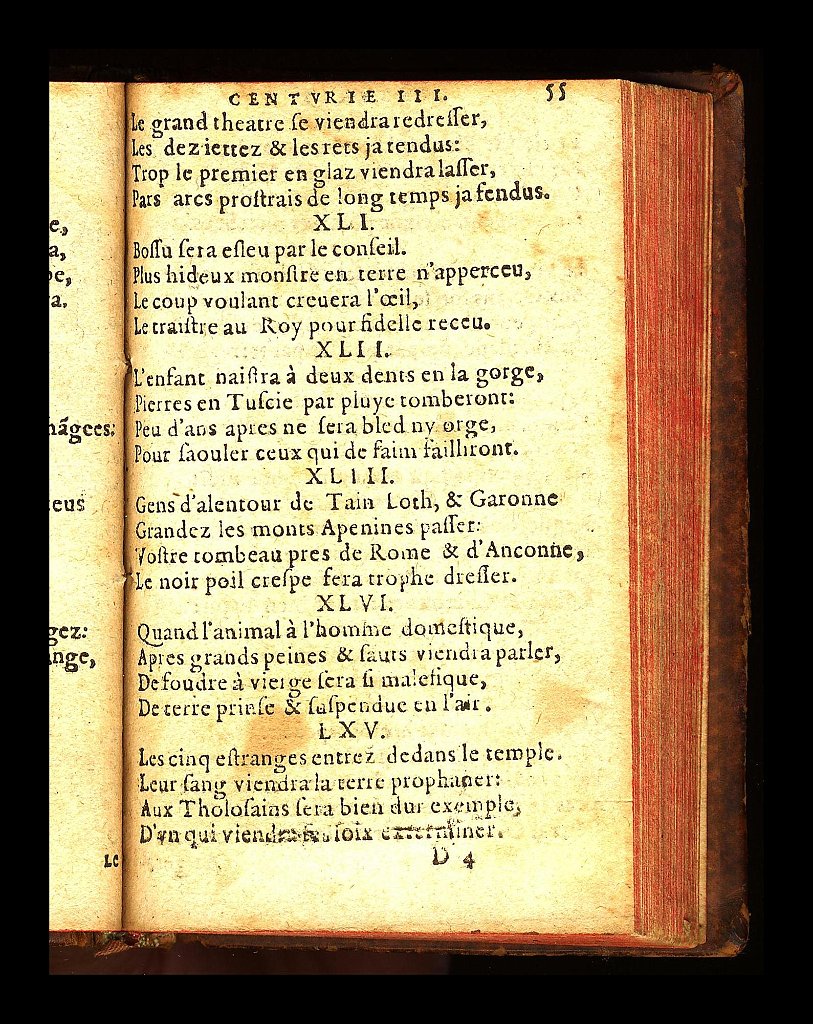 e,
a,
be,
ra.
hãgees:
eus
gez:
ange,
Le
CENTVRIE III. 55
Le grand theatre ſe viendra redreſſer,
Les dez iettez & les rets ja tendus:
Trop le premier en glaz viendra laſſer,
Pars arcs proſtrais de long temps ja fendus.
XLI.
Boſſu ſera eſleu par le conſeil.
Plus hideux monſtre en terre n'apperceu,
Le coup voulant creuera l'œil,
Le traiſtre au Roy pour fidelle receu.
XLII.
L'enfant naiſtra à deux dents en la gorge,
Pierres en Tuſcie par pluye tomberont:
Peu d'ans apres ne ſera bled ny orge,
Pour ſaouler ceux qui de faim failliront.
XLIII.
Gens d'alentour de Tain Loth, & Garonne
Grandez les monts Apenines paſſer:
Voſtre tombeau pres de Rome & d'Anconne,
Le noir poil creſpe fera trophe dreſſer.
XLVI.
Quand l'animal à l'homme domeſtique,
Apres grands peines & ſauts viendra parler,
De foudre à vierge ſera ſi malefique,
De terre prinſe & ſuſpendue en l'air.
LXV.
Les cinq eſtranges entrez dedans le temple.
Leur ſang viendra la terre prophaner:
Aux Tholoſains ſera bien dur exemple,
D'vn qui viendra ſes loix exterminer.
D 4